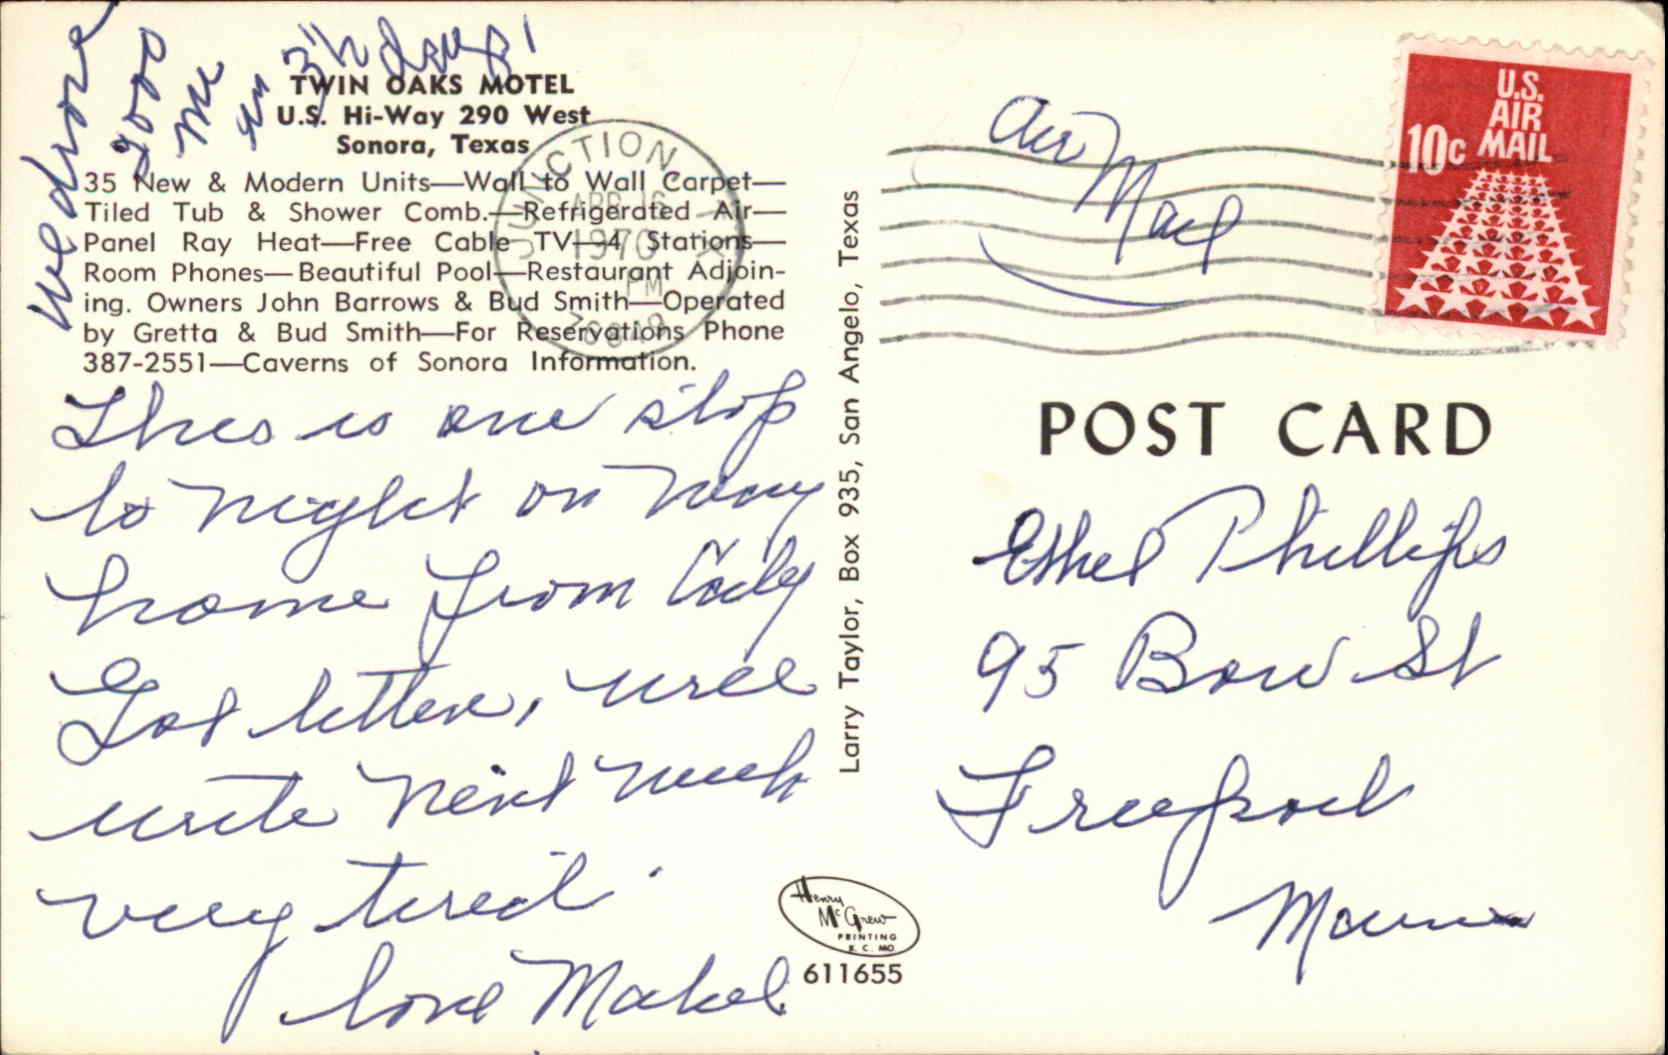 We drove
2000
Mi
in 3 1/2 days!
TWIN OAKS MOTEL
U.S. Hi-Way 290 West
Sonora, Texas
35 New & Modern Units—Wall to Wall Carpet—
Tiled Tub & Shower Comb.—Refrigerated Air—
Panel Ray Heat—Free Cable TV—4 Stations—
Room Phones—Beautiful Pool—Restaurant Adjoin-
ing. Owners John Barrows & Bud Smith—Operated
by Gretta & Bud Smith—For Reservations Phone
387-2551—Caverns of Sonora Information.
This is one stop
to night on way
home from Cody
Got letter, will
write next week
very tired.
love Mabel
JUNCTION, TX
APR 16
1970
PM
76849
Larry Taylor, Box 935, San Angelo, Texas
Henry
McGrew
PRINTING
K. C. MO
611655
Air Mail
U.S.
AIR
10c MAIL
POST CARD
Ethel Phillips
95 Bow St
Freeport
Maine